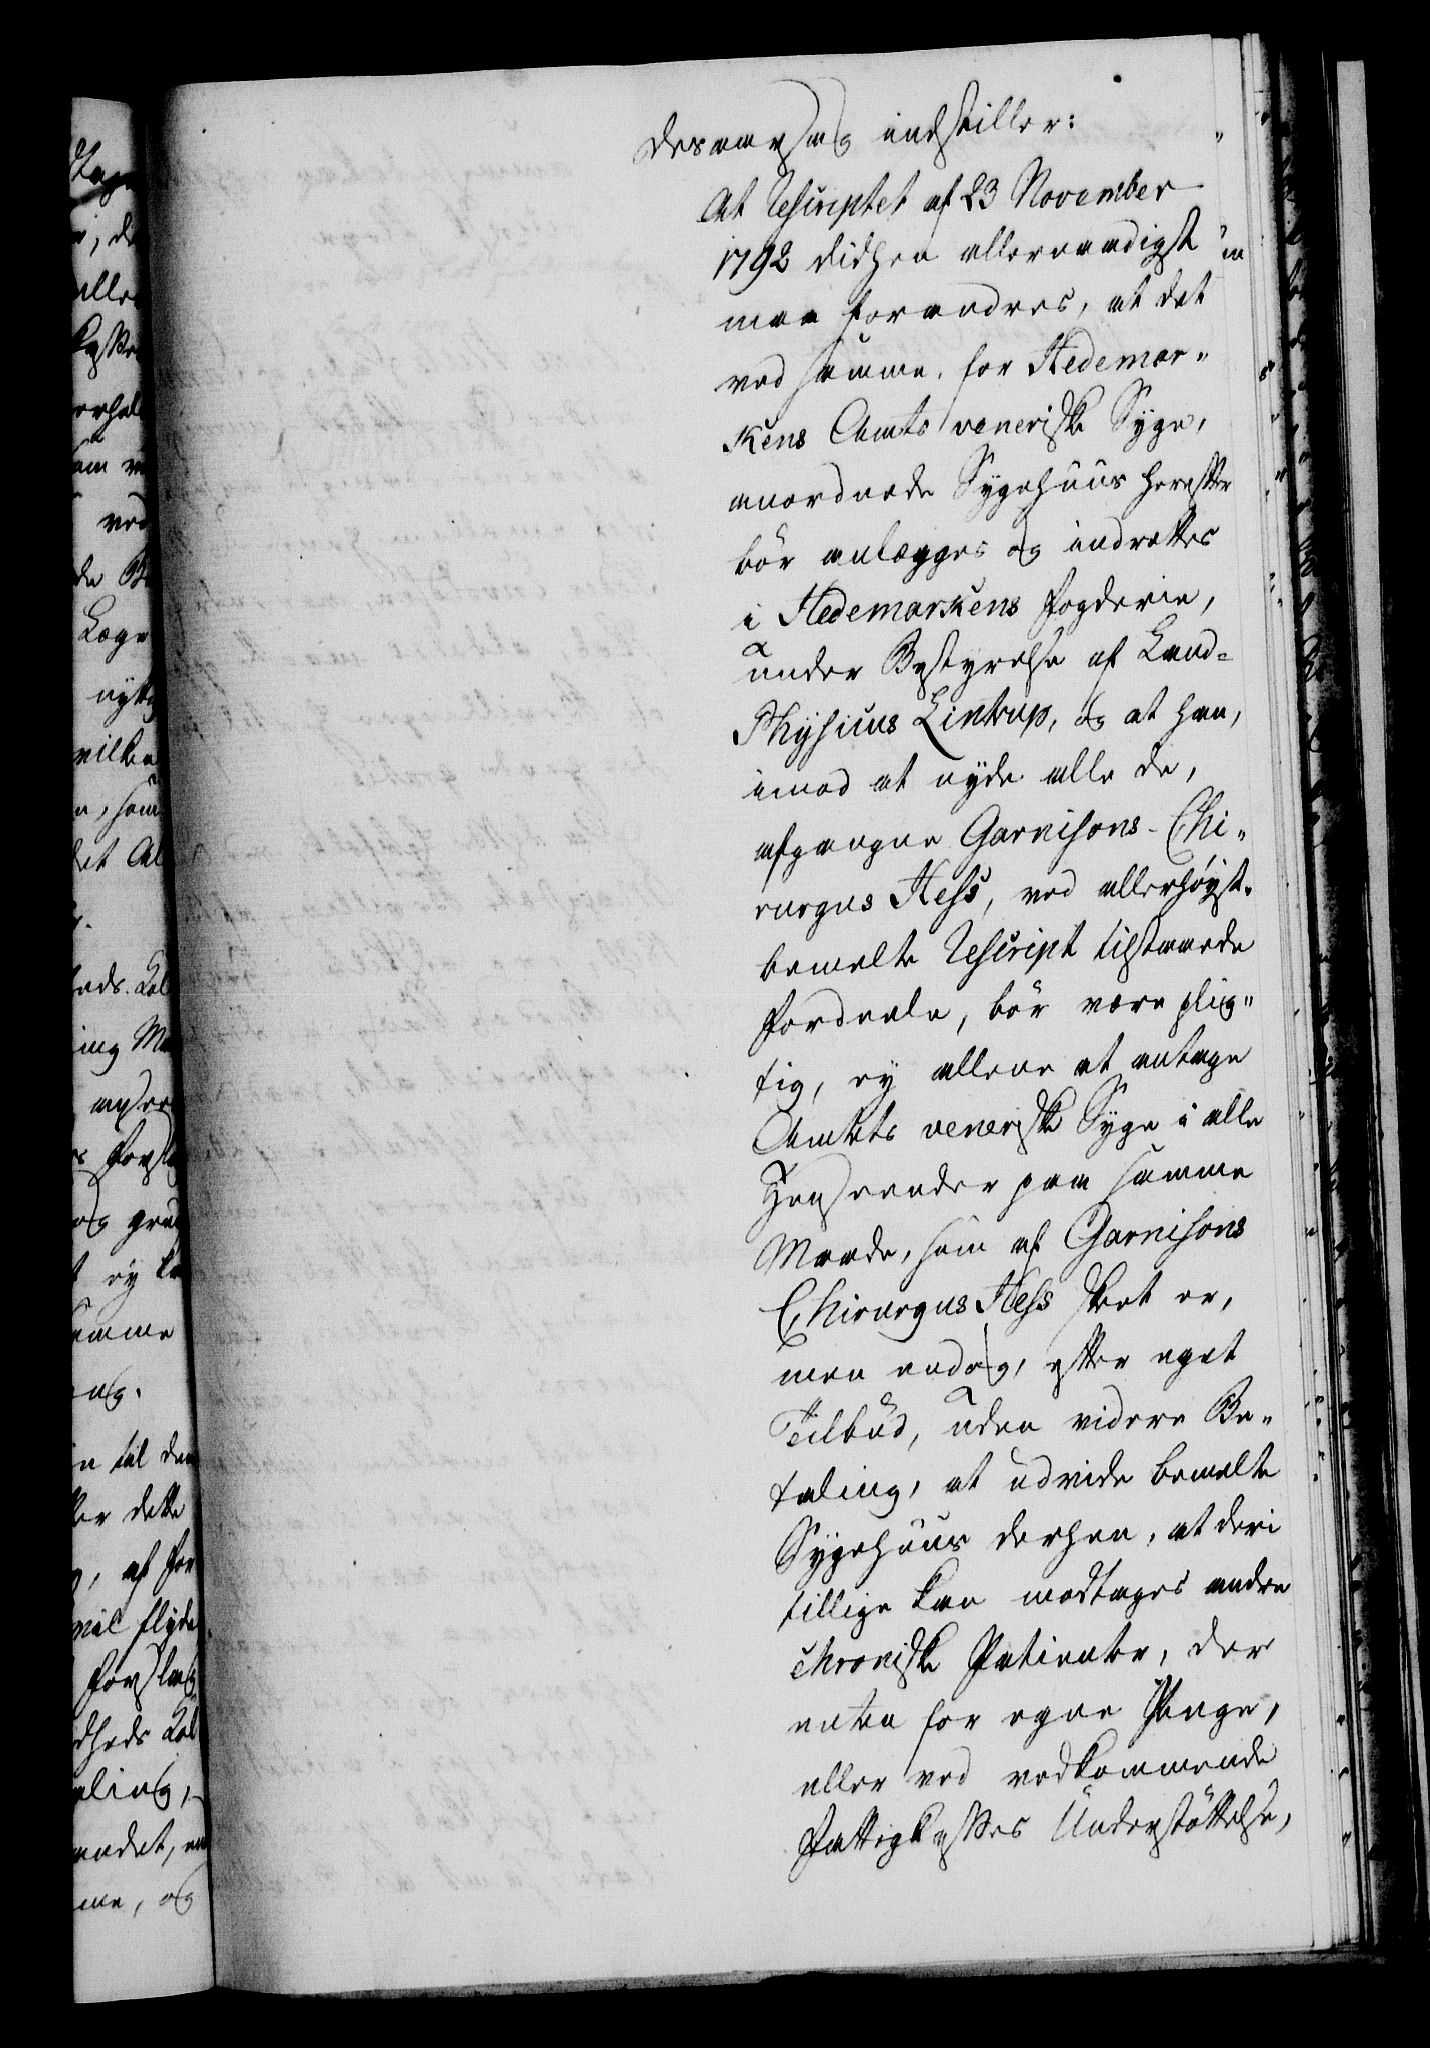 desaarsag indstiller:
At Rescriptet af 23 November
1792 didhen allernaadigst
maa forandres, at det
ved samme, for Hedemar„
kens Amts veneriske Syge,
anordnede Sygehuus herefter
bör anlægges og indrettes
i Hedemarkens Fogderie,
under Bestyrelse af Land-
Physicus Lintrup, og at han,
imod at nyde alle de,
afgangne Garnisons-Chi„
rurgus Hess, ved allerhöyst-
bemelte Rescript tilstaaede
Fordeele, bör være plig„
tig, ey allene at antage
Amtets veneriske Syge i alle
Henseender paa samme
Maade, som af Garnisons
Chirurgus Hess skeet er,
men endog, efter eget
Tilbud, uden videre Be„
taling, at udvide bemelte
Sygehuus derhen, at deri
tillige kan modtages andre
chroniske Patienter, der
enten for egne Penge,
eller ved vedkommende
Fattigkasses Understöttelse,